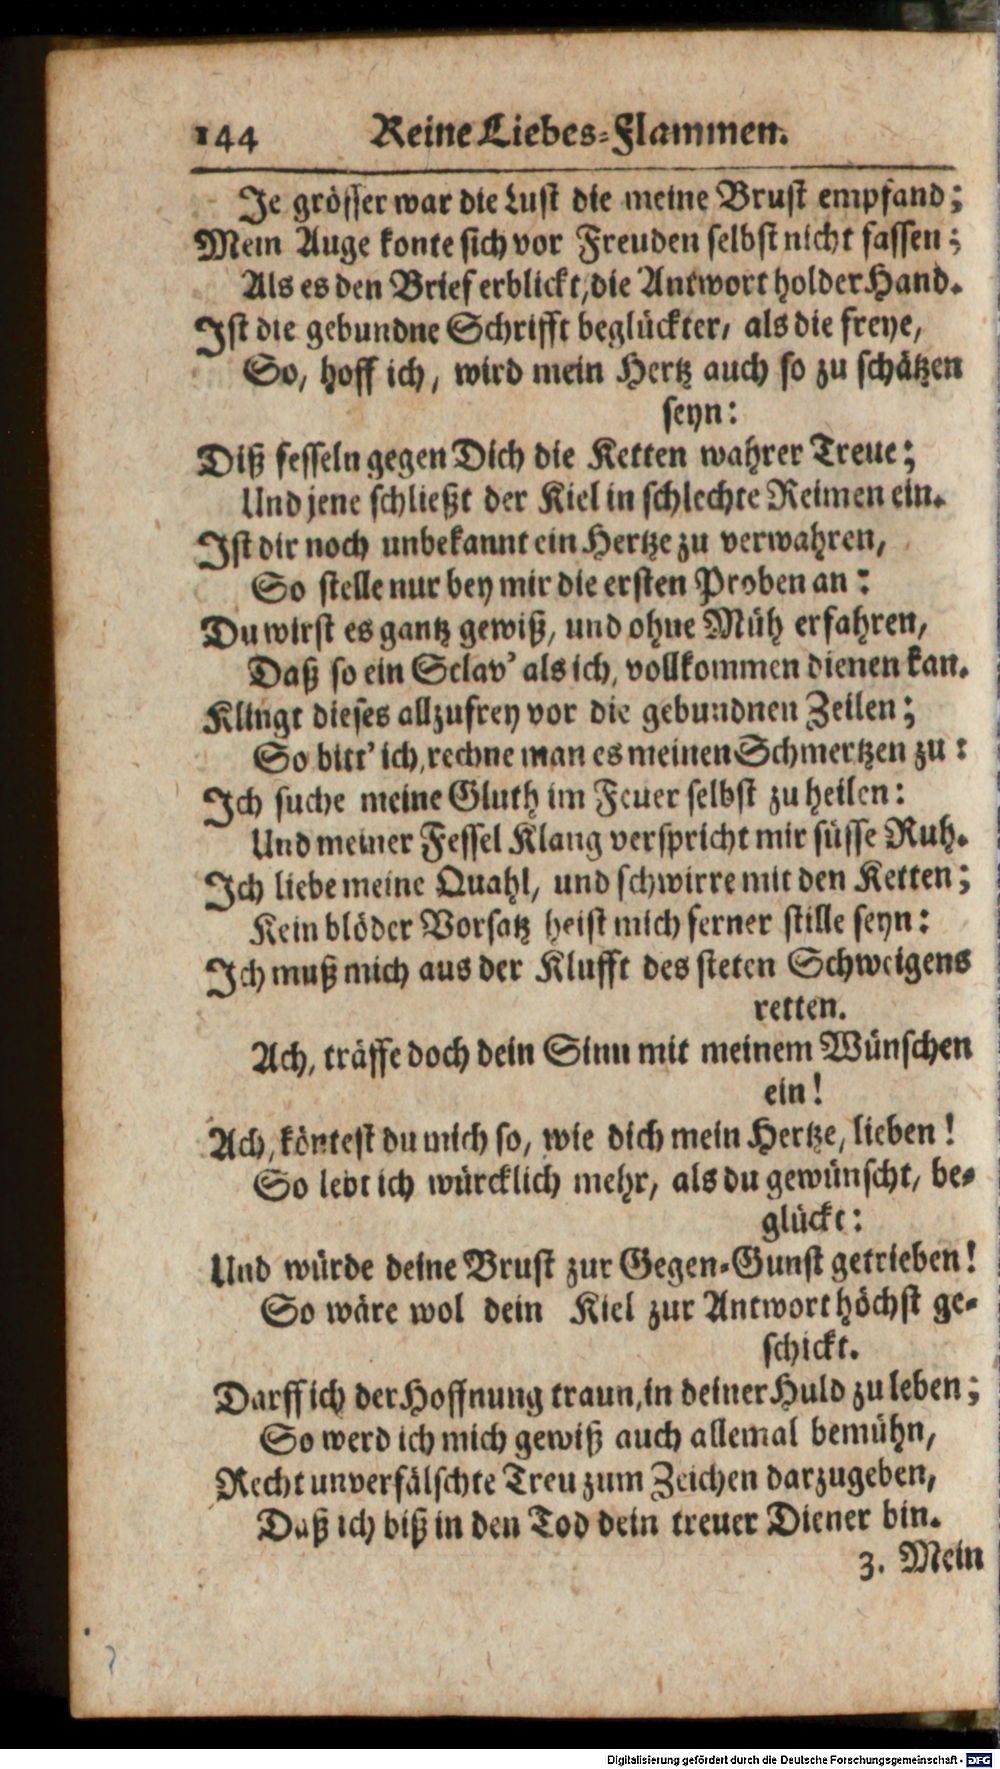 144 Reine Liebes-Flammen.
Je grösser war die Lust die meine Brust empfand;
Mein Auge konte sich vor Freuden selbst nicht fassen;
Als es den Brief erblickt, die Antwort holder Hand.
Ist die gebundne Schrifft beglückter, als die freye,
So, hoff ich, wird mein Hertz auch so zu schätzen
seyn:
Diß fesseln gegen Dich die Ketten wahrer Treue;
Und jene schließt der Kiel in schlechte Reimen ein.
Ist dir noch unbekannt ein Hertze zu verwahren,
So stelle nur bey mir die ersten Proben an:
Du wirst es gantz gewiß, und ohne Müh erfahren,
Daß so ein Sclav' als ich, vollkommen dienen kan.
Klingt dieses allzufrey vor die gebundnen Zeilen;
So bitt' ich, rechne man es meinen Schmertzen zu:
Ich suche meine Gluth im Feuer selbst zu heilen:
Und meiner Fessel Klang verspricht mir süsse Ruh.
Ich liebe meine Quahl, und schwirre mit den Ketten;
Kein blöder Vorsatz heist mich ferner stille seyn:
Ich muß mich aus der Klufft des steten Schweigens
retten.
Ach, träffe doch dein Sinn mit meinem Wünschen
ein!
Ach, köntest du mich so, wie dich mein Hertze, lieben!
So lebt ich würcklich mehr, als du gewünscht, be-
glückt:
Und würde deine Brust zur Gegen-Gunst getrieben!
So wäre wol dein Kiel zur Antwort höchst ge-
schickt.
Darff ich der Hoffnung traun, in deiner Huld zu leben;
So werd ich mich gewiß auch allemal bemühn,
Recht unverfälschte Treu zum Zeichen darzugeben,
Daß ich biß in den Tod dein treuer Diener bin.
3. Mein
Digitalisierung gefördert durch die Deutsche Forschungsgemeinschaft - DFG